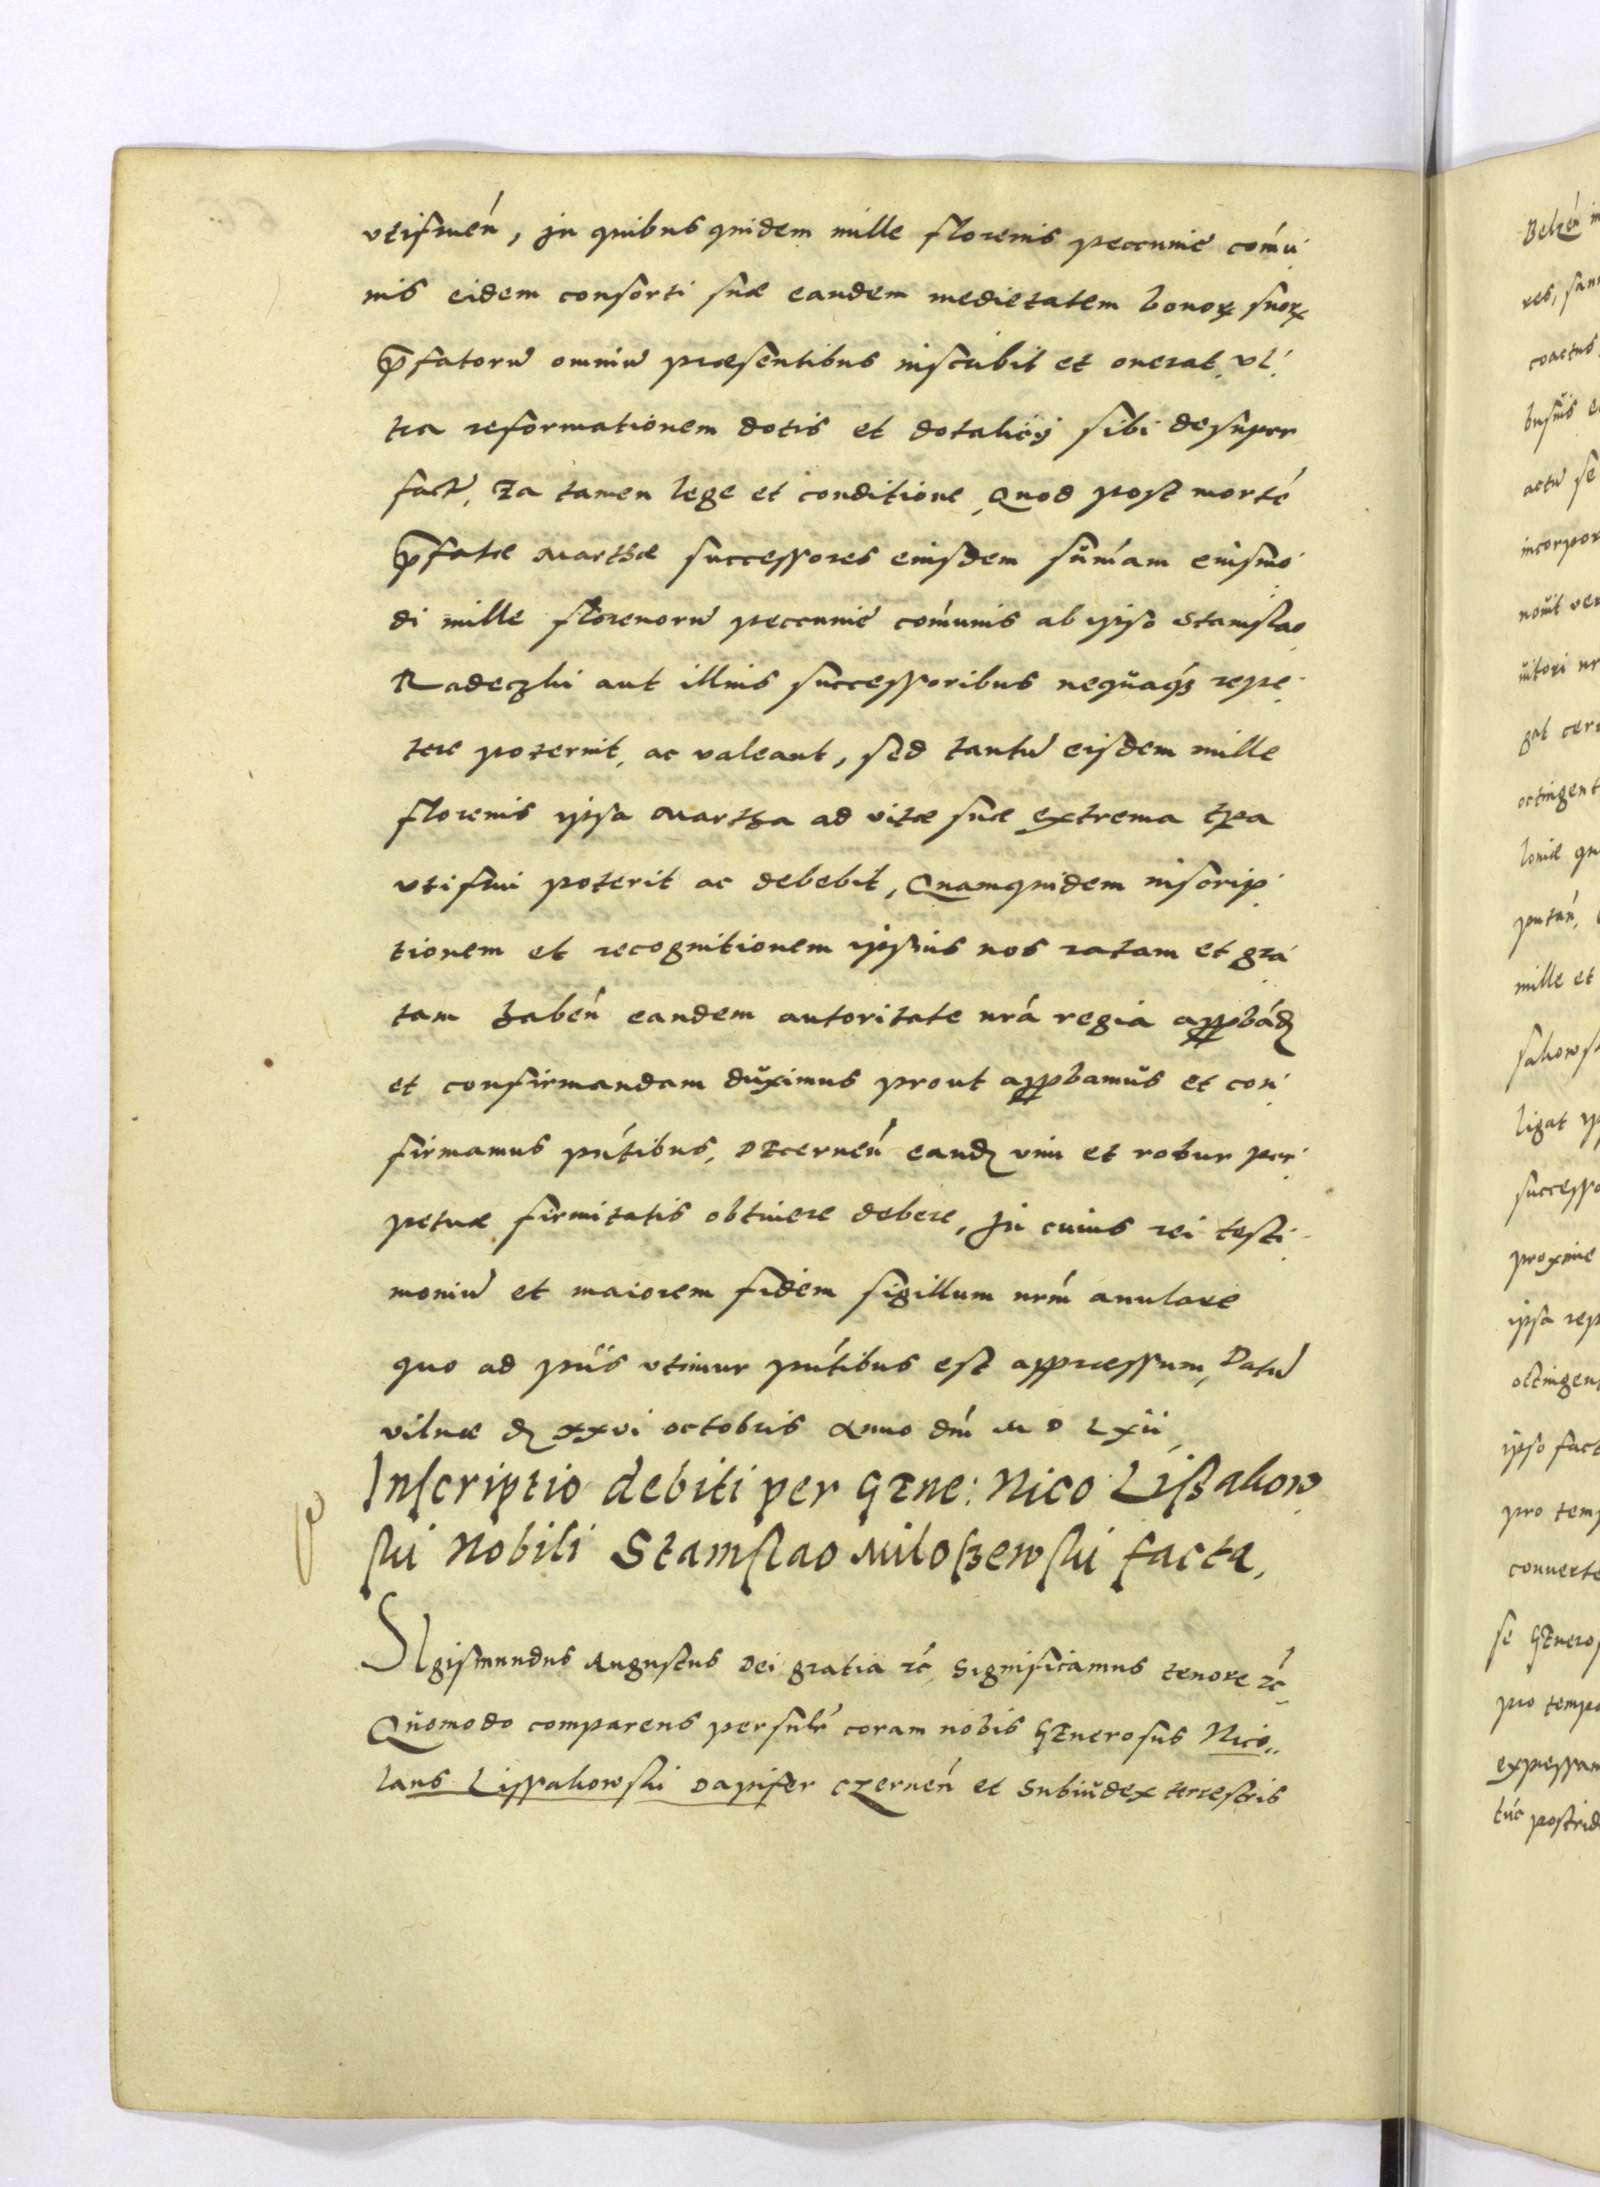 vtifruen̄, in quibus quidem mille florenis peccunie com̄u-
nis eidem consorti suæ eandem medietatem bonoꝝ suoꝝ
p̄fatorū omniū præsentibus inscribit et onerat, vl-
tra reformationem dotis et dotalicij sibi desuper
factū, Ea tamen lege et conditione, Quod post mortē
p̄fatæ Marthæ successores eiusdem sum̄am eiusmo-
di mille florenorū peccunie com̄unis ab ipso Stanislao
Radeczki aut illius successoribus nequaqꝫ repe-
tere poterint, ac valeant, sed tantū eisdem mille
florenis ipsa Martha ad vitæ suæ extrema tp̄a
vtifrui poterit ac debebit, Quamquidem inscrip-
tionem et recognitionem ipsius nos ratam et gra-
tam haben̄ eandem autoritate nr̄a regia approbād
et confirmandam duximus prout approbamus et con-
firmamus pn̄tibus, Decernen̄ eand vim et robur per-
petuæ firmitatis obtinere debere, In cuius rei testi-
moniū et maiorem fidem sigillum nrm̄ anulare
quo ad pn̄s vtimur pn̄tibus est appressum, Datū
vilnæ d xxvi octobris Anno dn̄i M D Lxii,
Inscriptio debiti per Gene: Nico Lißakow-
ski Nobili Stanislao Miloßewski facta,
SIgismundus Augustus Dei gratia ꝛc̄ Significamus tenore ꝛc̄,
Quomodo comparens personlr̄ coram nobis Generosus Nico-
laus Lissakowski Dapifer Czernen̄ et Subiudex terrestris
Belzen̄
res,
coactus
actū se
incorpor
gat
octingent
mille et
ligat
successo
proxime
ipsa rep
octingen
ipso fact
pro temp
conuerte
se Generos
pro tempo
expressam
tūc postrid